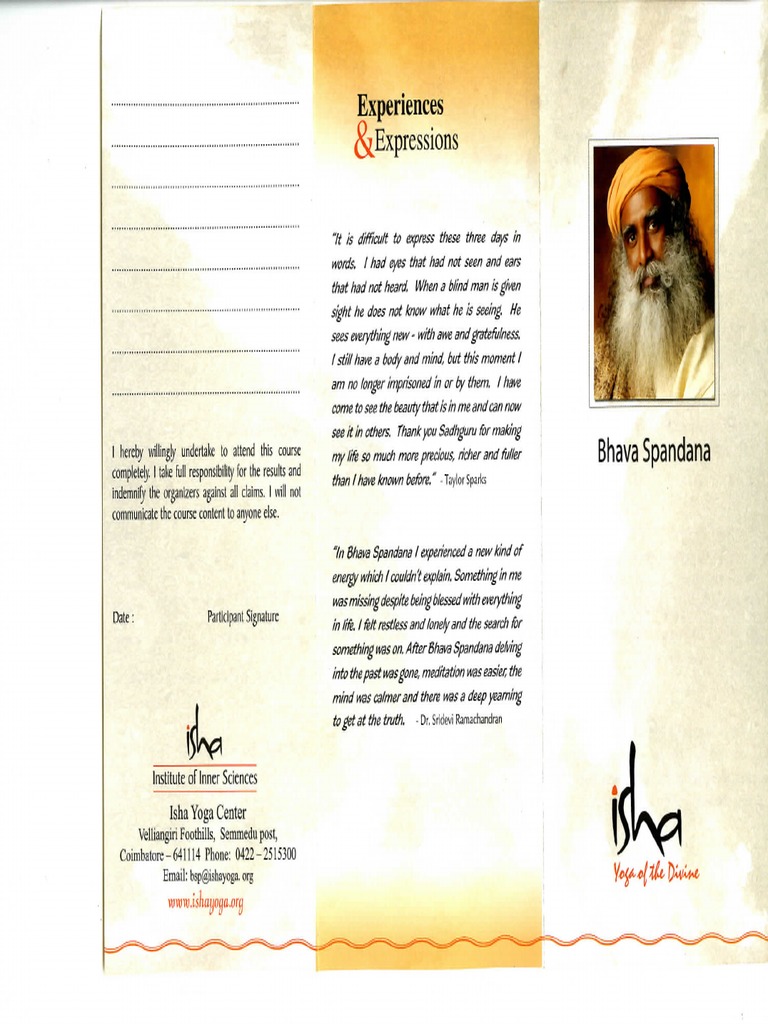 I hereby willingly undertake to attend this course
completely. I take full responsibility for the results and
indemnify the organizers against all claims. I will not
communicate the course content to anyone else.
Date :
Participant Signature
isha
Institute of Inner Sciences
Isha Yoga Center
Velliangiri Foothills, Semmedu post,
Coimbatore – 641114 Phone: 0422 – 2515300
Email: bsp@ishayoga. org
www.ishayoga.org
Experiences
& Expressions
"It is difficult to express these three days in
words. I had eyes that had not seen and ears
that had not heard. When a blind man is given
sight he does not know what he is seeing. He
sees everything new - with awe and gratefulness.
I still have a body and mind, but this moment I
am no longer imprisoned in or by them. I have
come to see the beauty that is in me and can now
see it in others. Thank you Sadhguru for making
my life so much more precious, richer and fuller
than I have known before." - Taylor Sparks
"In Bhava Spandana I experienced a new kind of
energy which I couldn't explain. Something in me
was missing despite being blessed with everything
in life. I felt restless and lonely and the search for
something was on. After Bhava Spandana delving
into the past was gone, meditation was easier, the
mind was calmer and there was a deep yearning
to get at the truth. - Dr. Sridevi Ramachandran
Bhava Spandana
isha
Yoga of the Divine